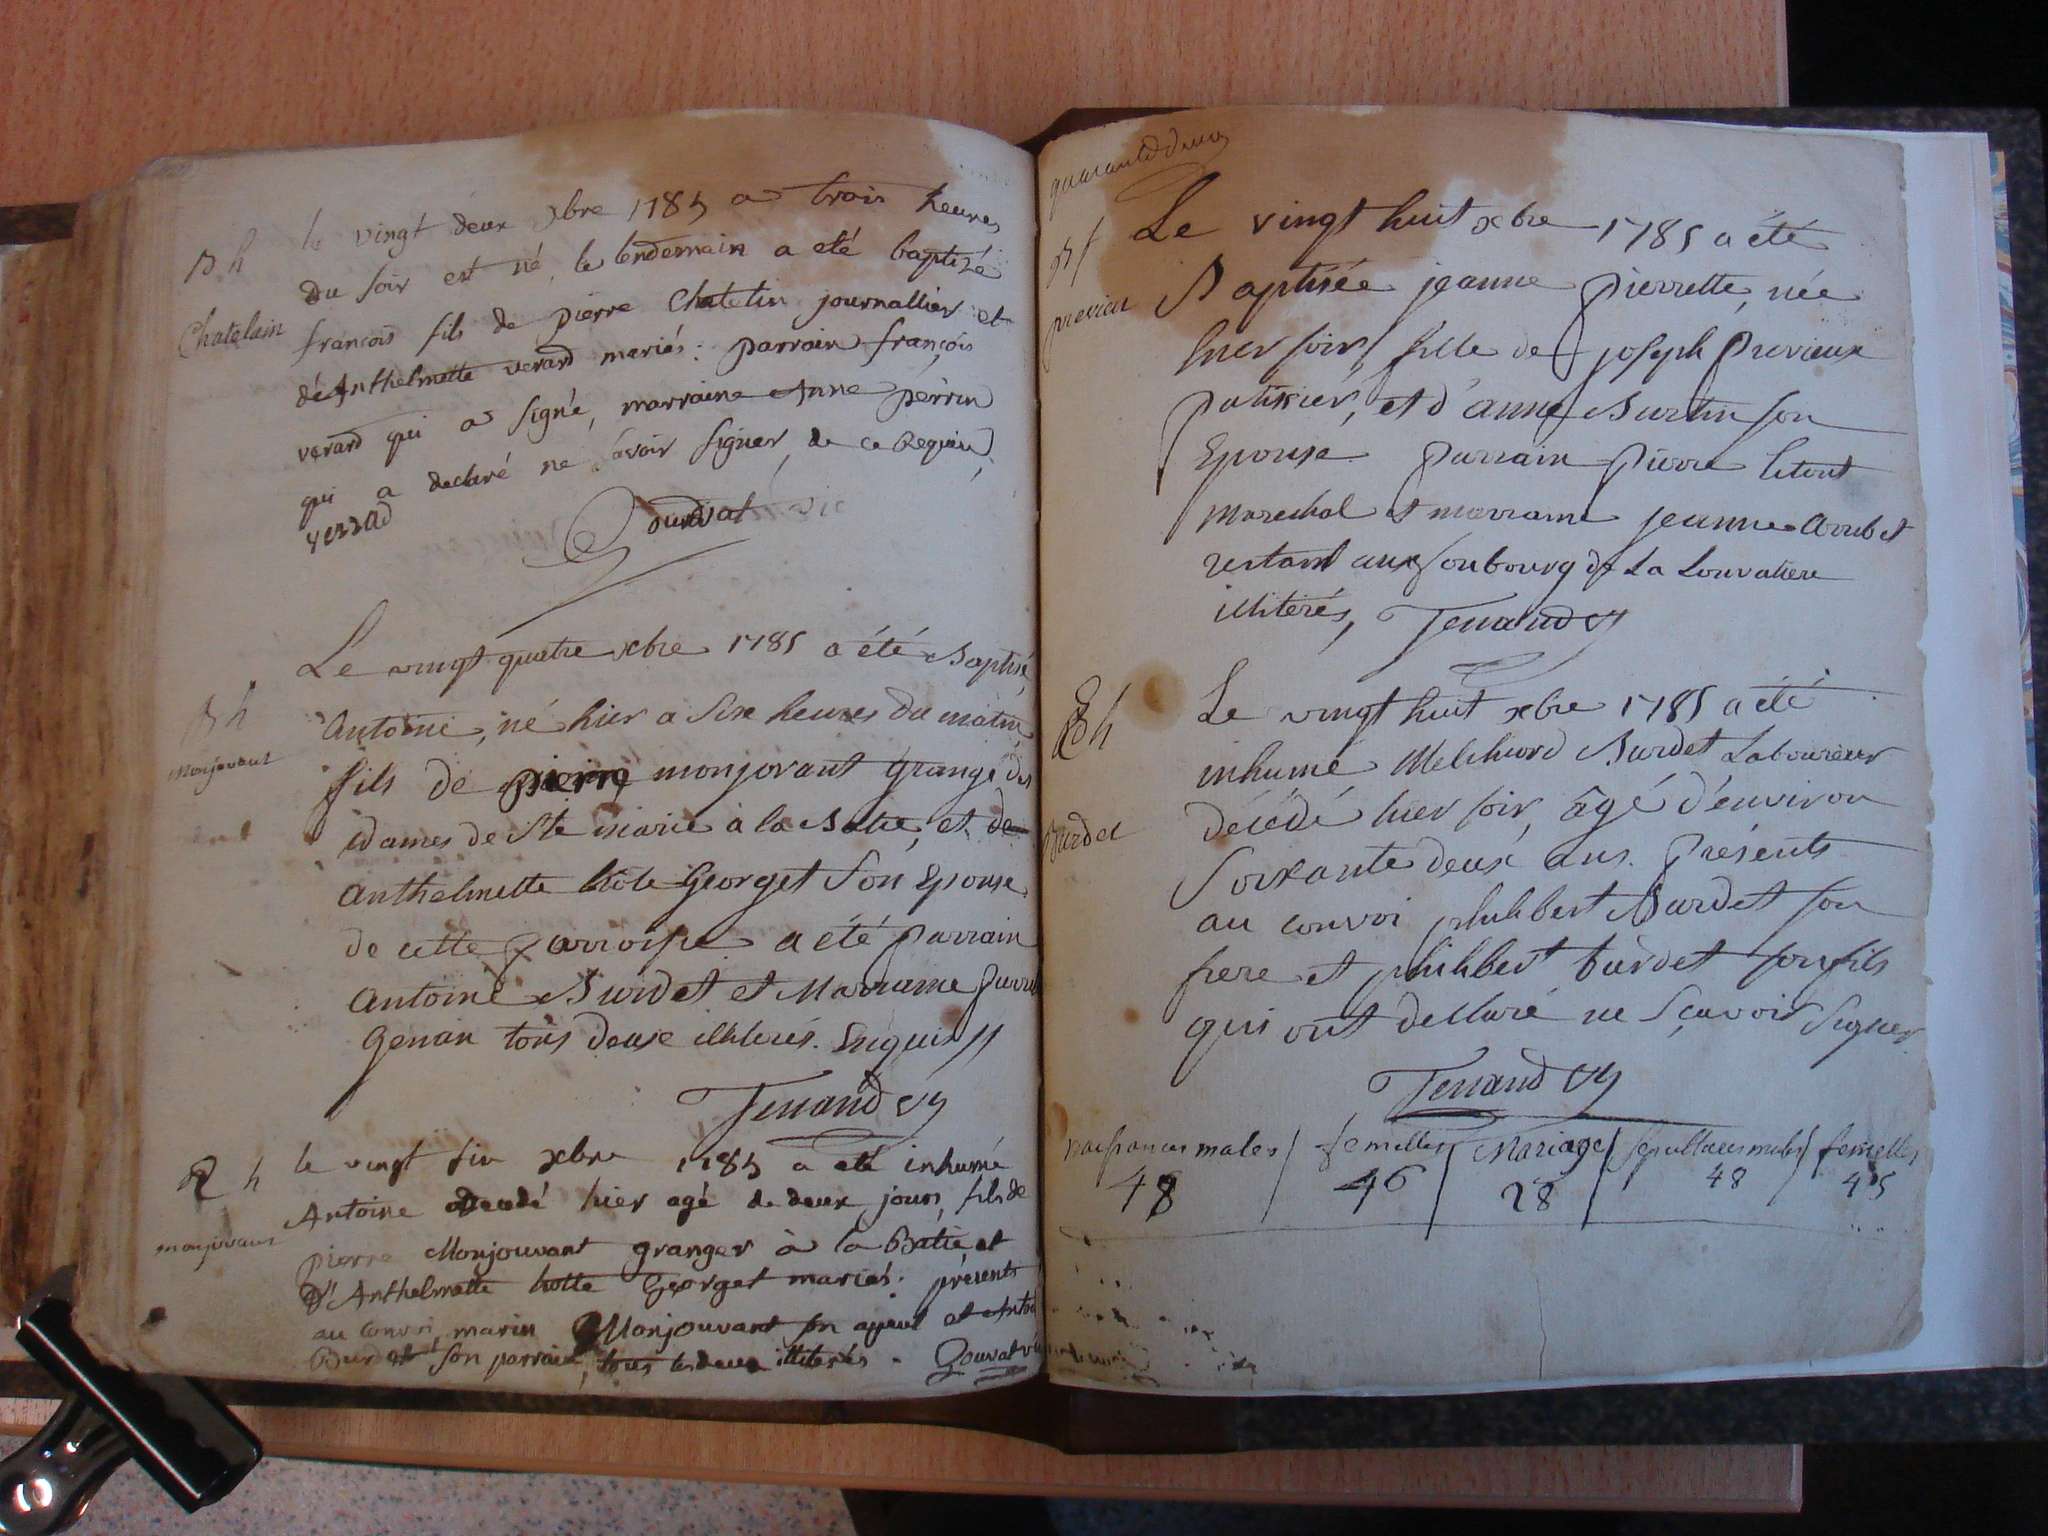 B h
Chatelain
le vingt deux xbre 1785 a trois heures
du soir est né, le lendemain a eté baptizé
francois fils de pierre Chatelin journallier et
dé Anthelmette verard mariés: parrain françois
verard qui a signé, marraine Anne perrin
qui a declaré ne savoir signer, de ce Requis,
verrad
B h
Monjovant
Le vingt quatre xbre 1785 a été Baptisé
Antoine, né hier a six heures du matin,
fils de pierre monjovant granger des
Dames de Ste marie à la Batie, et de
Anthelmette hôte Georget son Epouse
de cette parroisse a été parrain
Antoine Burdet et Marraine
Genan tous deux illiterés. Enquis //
Tenand vy
h
monjovant
le vingt sin xbre 1785 a eté inhumé
Antoine decedé hier agé de deux jours, fils de
pierre Monjouvant granger à la Batie et
d'Anthelmette hotte Georget mariés: présents
au convoi, marin Monjouvant son ayeul et
Burdet son parrain, tous les deux illiterés.
quarante deux
B f
previeu
Le vingt huit xbre 1785 a été
Baptisée jeanne pierrette, née
hier soir, fille de joseph Previeux
patissier, et d'anne Burtin son
Epouse. parrain pierre
Marechal et marraine jeanne
restant aux foubourg de La Louvatiere
illiterés, Tenand vy
h
Burdet
Le vingt huit xbre 1785 a été
inhumé Melchiord Burdet Laboureur
décédé hier soir, âgé d'environ
Soixante deux ans. Présents
au convoi philibert Burdet son
frere et philibert burdet son fils
qui ont declaré ne sçavoir signer.
Tenand vy
naissances males / femelles / Mariage / sepultures males / femelles
48 / 46 / 28 / 48 / 45